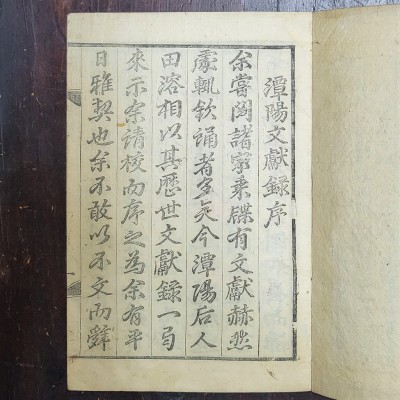 潭陽文獻錄序
余嘗閱諸家乘牒有文獻赫然
處輒欽誦者多矣今潭陽后人
田溶相以其歷世文獻錄一局
來示余請校而序之為余有平
日雅契也余不敢以不文而辭